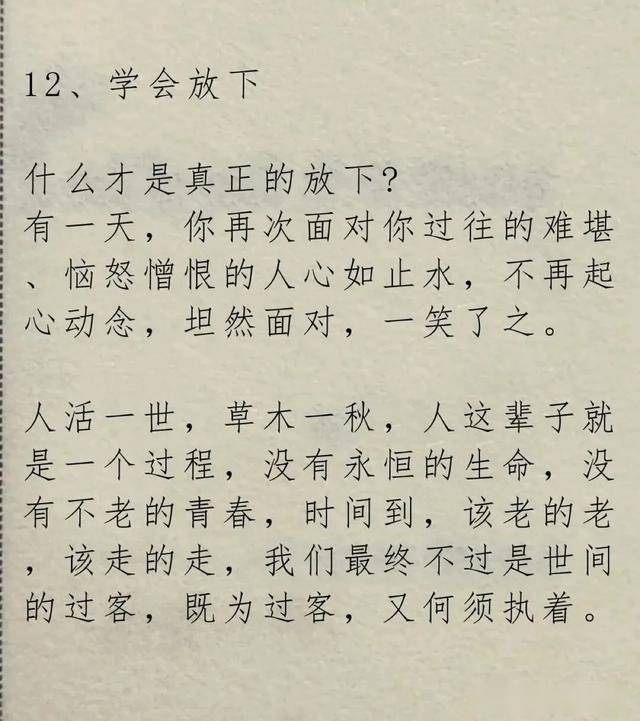 12、学会放下
什么才是真正的放下?
有一天，你再次面对你过往的难堪
、恼怒憎恨的人心如止水，不再起
心动念，坦然面对，一笑了之。
人活一世，草木一秋，人这辈子就
是一个过程，没有永恒的生命，没
有不老的青春，时间到，该老的老
，该走的走，我们最终不过是世间
的过客，既为过客，又何须执着。